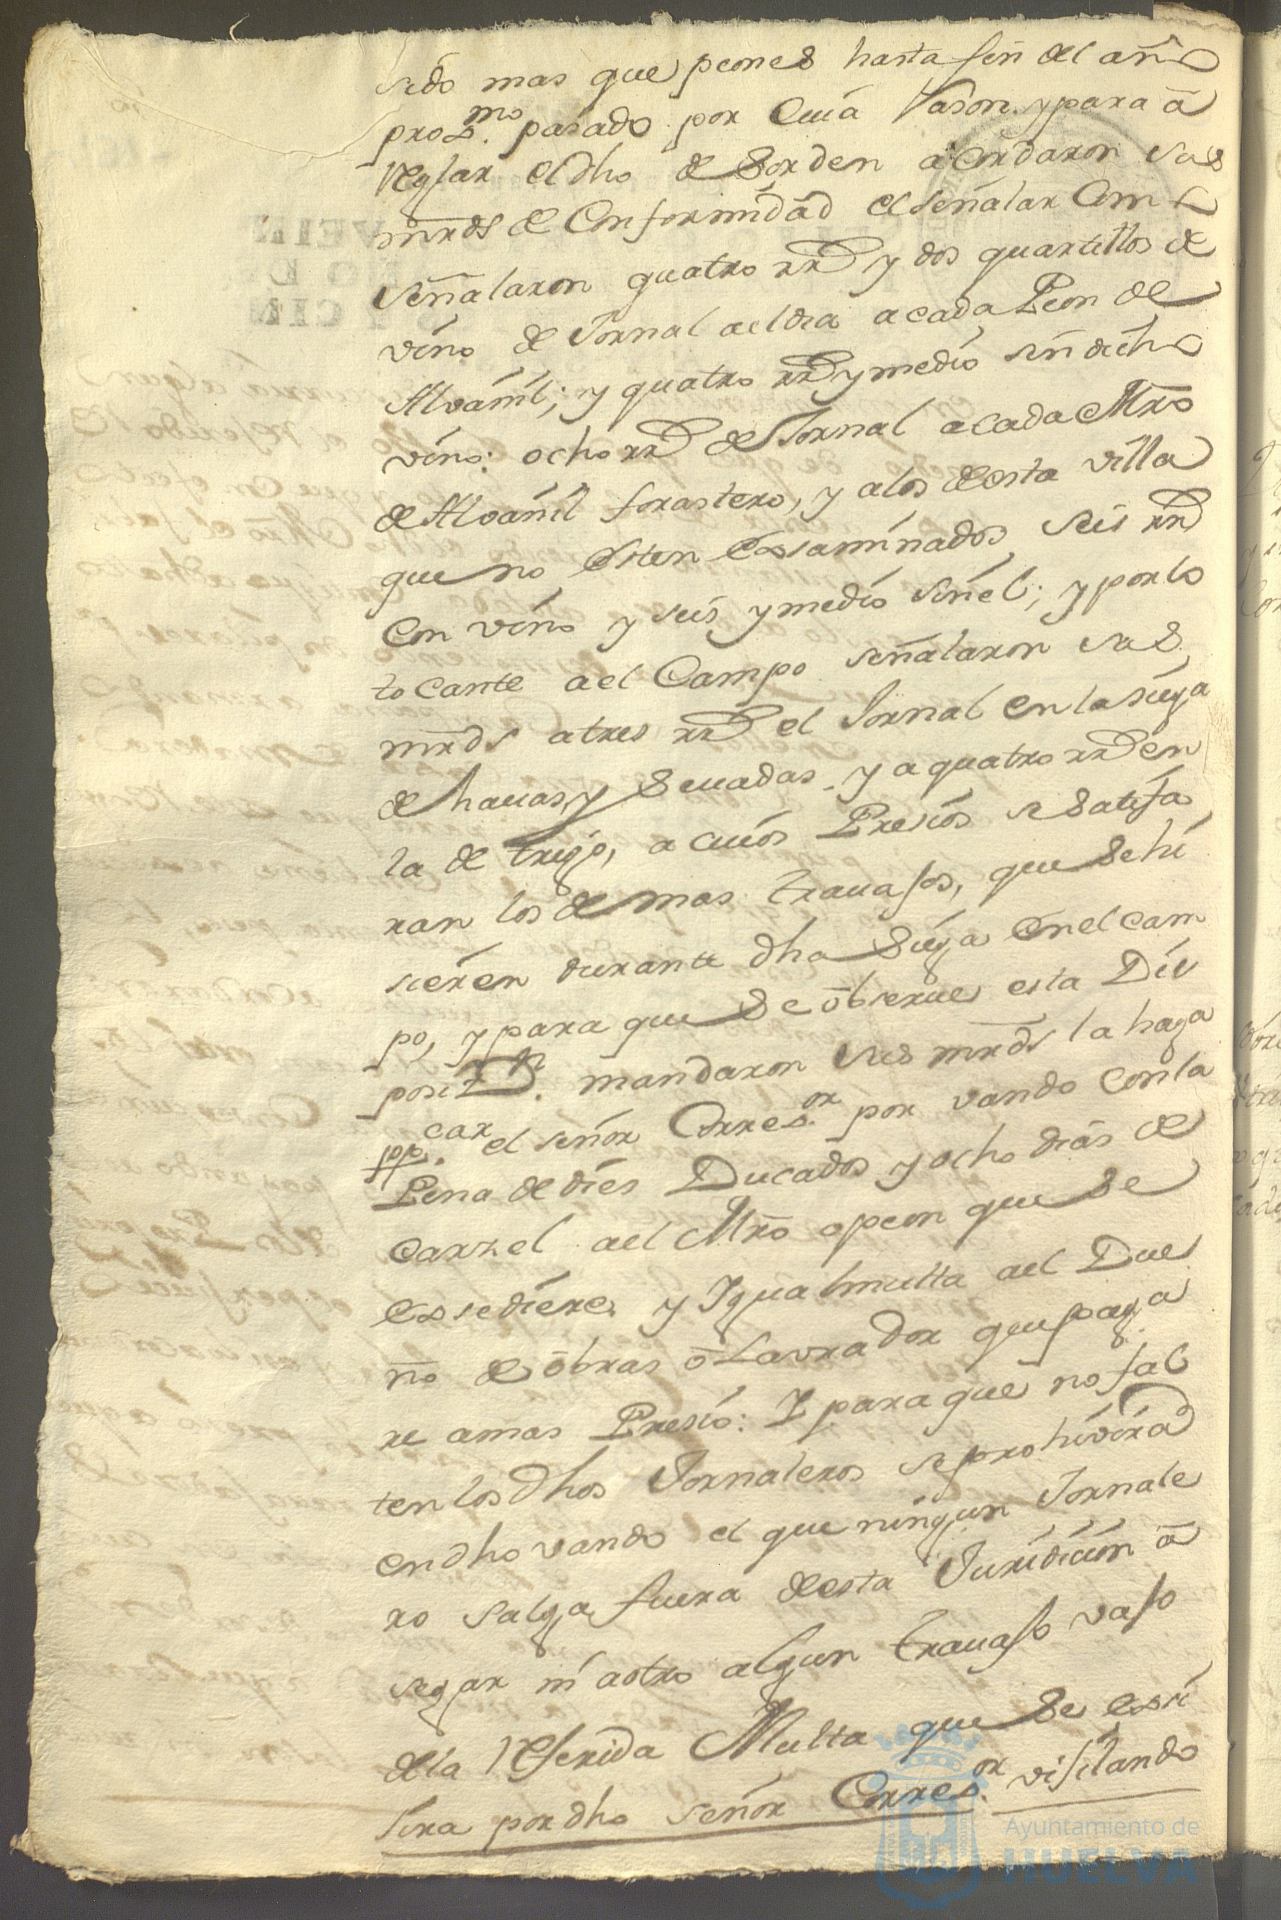 sido mas que peones hasta fin del año
prox.mo pasado por cuia rason. y para â
reglar el dho desorden acordaron sus
mrds de Conformidad el señalar Como
señalaron quatro rrs y dos quartillos de
vino de Jornal ael dia a cada Peon de
Alvañil; y quatro rrs y medio sin dicho
vino: ocho rrs de Jornal a cada Mro
de Alvañil forastero, y alos desta villa
que no esten Exsaminados seis rrs
Con vino y seis y medio sin el; y por lo
tocante ael Campo señalaron sus
mrds atres rrs el Jornal en la siega
de havas, y sevadas, y a quatro rrs en
la de trigo, a cuios Presios se satisfa
ran los demas travajos, que se hi
sieren durante dha siega en el cam
po, y para que se observe esta Dis
posiz.n mandaron sus mrds la haga
pp.car el señor Corres.or por vando con la
Pena de dies Ducados y ocho dias de
carzel ael Mro o peon que se
exsediere y Igual multa ael Due
ño de obras ô Lavrador que paga
re a mas Presio: Y para que no fal
ten los dhos Jornaleros se prohivirá
en dho vando el que ningun Jornale
ro salga fuera desta Jurisdicion â
segar ni a otro algun travajo vajo
dela referida Multa que se exsi
jira por dho señor Corres.or visilando
Ayuntamiento de
HUELVA